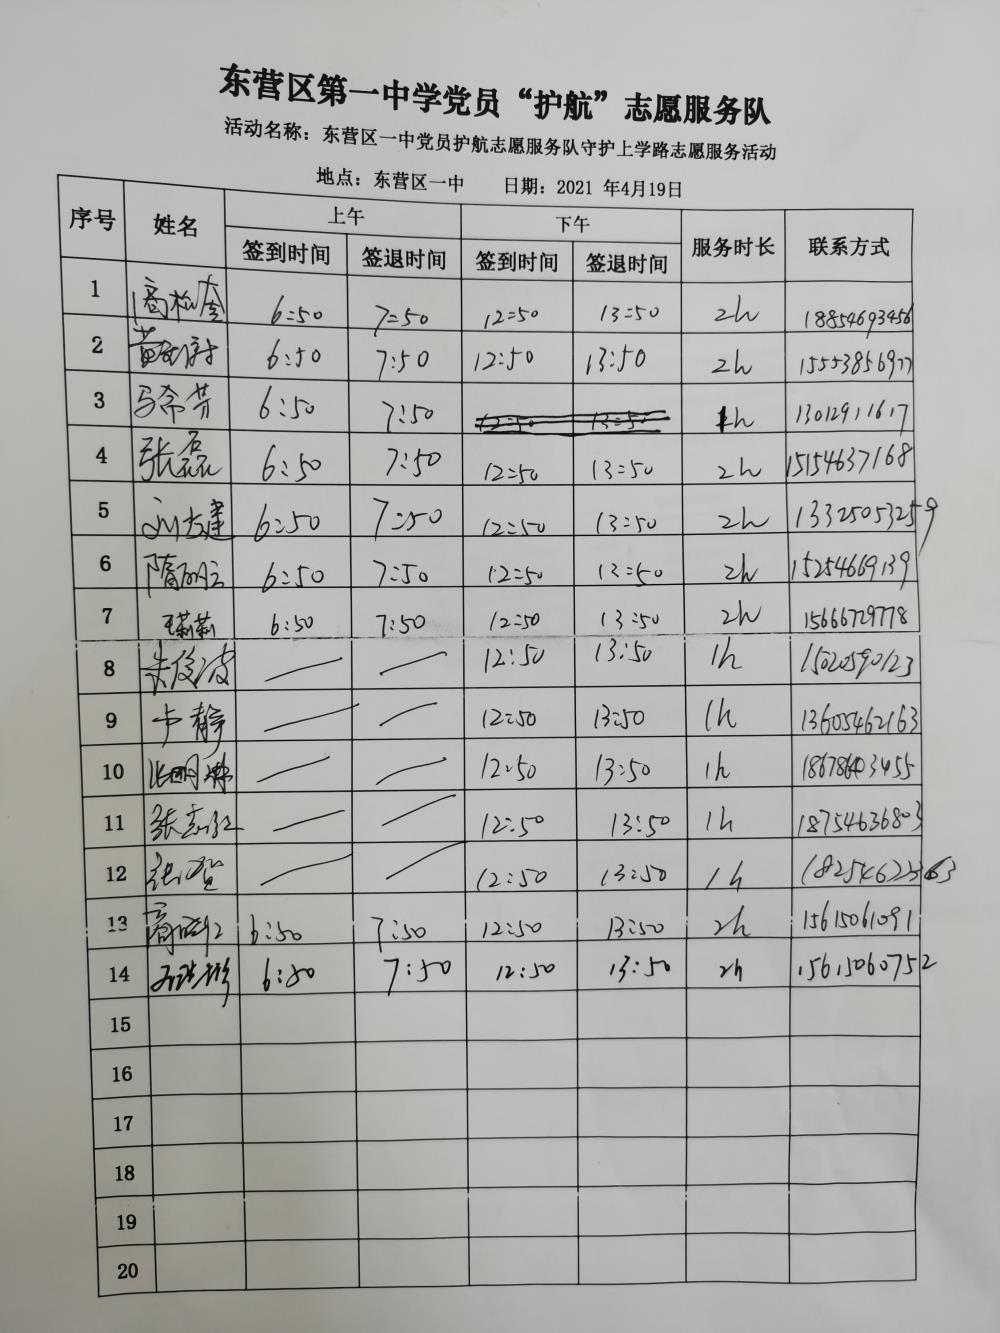 东营区第一中学党员“护航”志愿服务队
活动名称：东营区一中党员护航志愿服务队守护上学路志愿服务活动
地点：东营区一中 日期：2021 年4月19日
序号 姓名 上午 下午 服务时长 联系方式
签到时间 签退时间 签到时间 签退时间
1 6:50 7:50 12:50 13:50 2h 18854693456
2 6:50 7:50 12:50 13:50 2h 15553856977
3 马希芳 6:50 7:50 1h 13012911617
4 张磊 6:50 7:50 12:50 13:50 2h 15154637168
5 刘志建 6:50 7:50 12:50 13:50 2h 13325053259
6 隋丽云 6:50 7:50 12:50 13:50 2h 15254669139
7 王莉莉 6:50 7:50 12:50 13:50 2h 15666729778
8 朱俊波 12:50 13:50 1h 15020590123
9 卢静 12:50 13:50 1h 13605462163
10 12:50 13:50 1h
11 张志红 12:50 13:50 1h 18754636803
12 张贺 12:50 13:50 1h
13 6:50 7:50 12:50 13:50 2h 15615061091
14 6:50 7:50 12:50 13:50 2h 15615060752
15
16
17
18
19
20